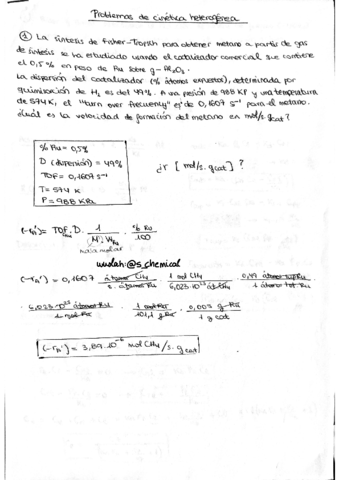 Problemas de cinética heterogénea
① La síntesis de Fisher-Tropsch para obtener metano a partir de gas
de síntesis se ha estudiado usando el catalizador comercial que contiene
el 0,5% en peso de Ru sobre g-Al2O3.
La dispersión del catalizador (% átomos expuestos), determinada por
quimisorción de H2 es del 49%. A una presión de 988 KP y una temperatura
de 574 K, el "turn over frequency" es de 0,1607 s⁻¹ para el metano.
¿Cuál es la velocidad de formación del metano en mol/s.gcat?
% Ru = 0,5%
D (dispersión) = 49%
TOF = 0,1607 s⁻¹
T = 574 K
P = 988 KPa
¿r [mol/s.gcat]?
(-rA') = TOF . D . 1/(M . WRu) . % Ru/100
masa molar
wuolah:@s_chemical
(-rA') = 0,1607 átomos CH4/s. átomos Ru . 1 mol CH4/6,023·10²³ át CH4 . 0,49 átomo sup Ru/1 átomo tot Ru
. 6,023·10²³ átomos Ru/1 mol Ru . 1 mol Ru/101,1 g Ru . 0,005 g Ru/1 g cat
(-rA') = 3,89·10⁻⁶ mol CH4/s. gcat